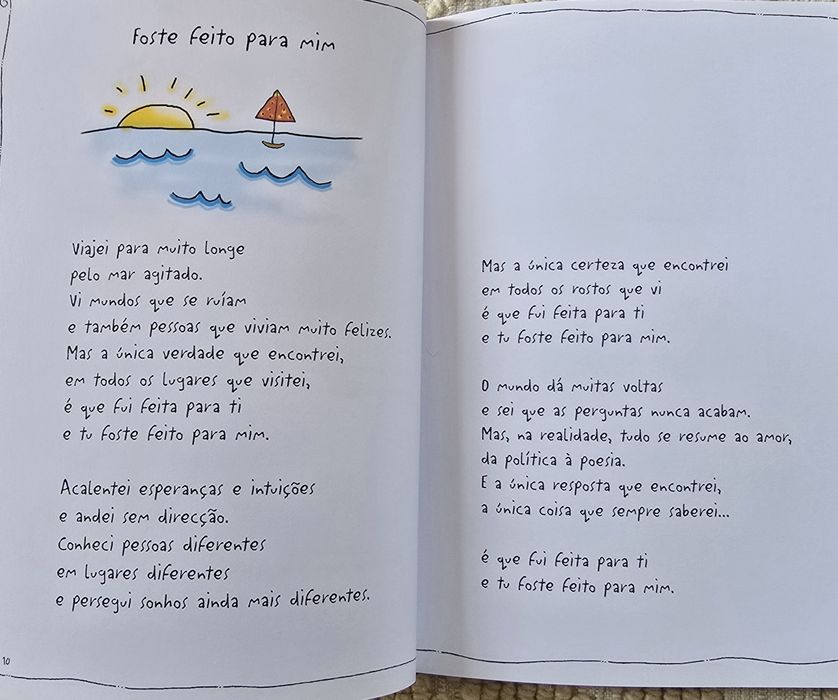 Foste feito para mim
Viajei para muito longe
pelo mar agitado.
Vi mundos que se ruíam
e também pessoas que viviam muito felizes.
Mas a única verdade que encontrei,
em todos os lugares que visitei,
é que fui feita para ti
e tu foste feito para mim.
Acalentei esperanças e intuições
e andei sem direcção.
Conheci pessoas diferentes
em lugares diferentes
e persegui sonhos ainda mais diferentes.
10
Mas a única certeza que encontrei
em todos os rostos que vi
é que fui feita para ti
e tu foste feito para mim.
O mundo dá muitas voltas
e sei que as perguntas nunca acabam.
Mas, na realidade, tudo se resume ao amor,
da política à poesia.
E a única resposta que encontrei,
a única coisa que sempre saberei...
é que fui feita para ti
e tu foste feito para mim.